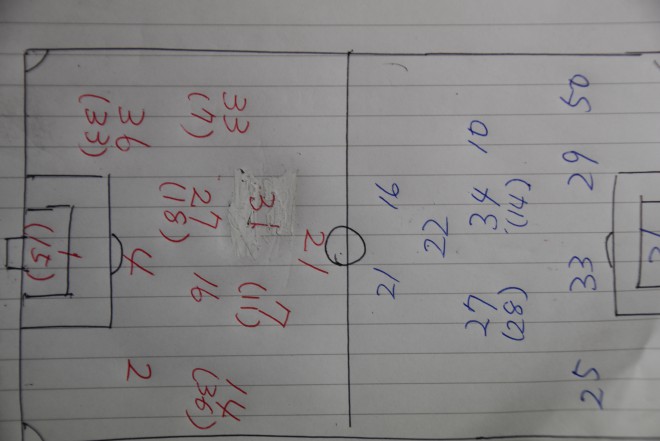 33
(7)
36
(33)
31
27
(18)
21
1
(15)
4
16
7
(11)
2
14
(36)
50
10
29
16
34
(14)
22
21
33
27
(28)
25